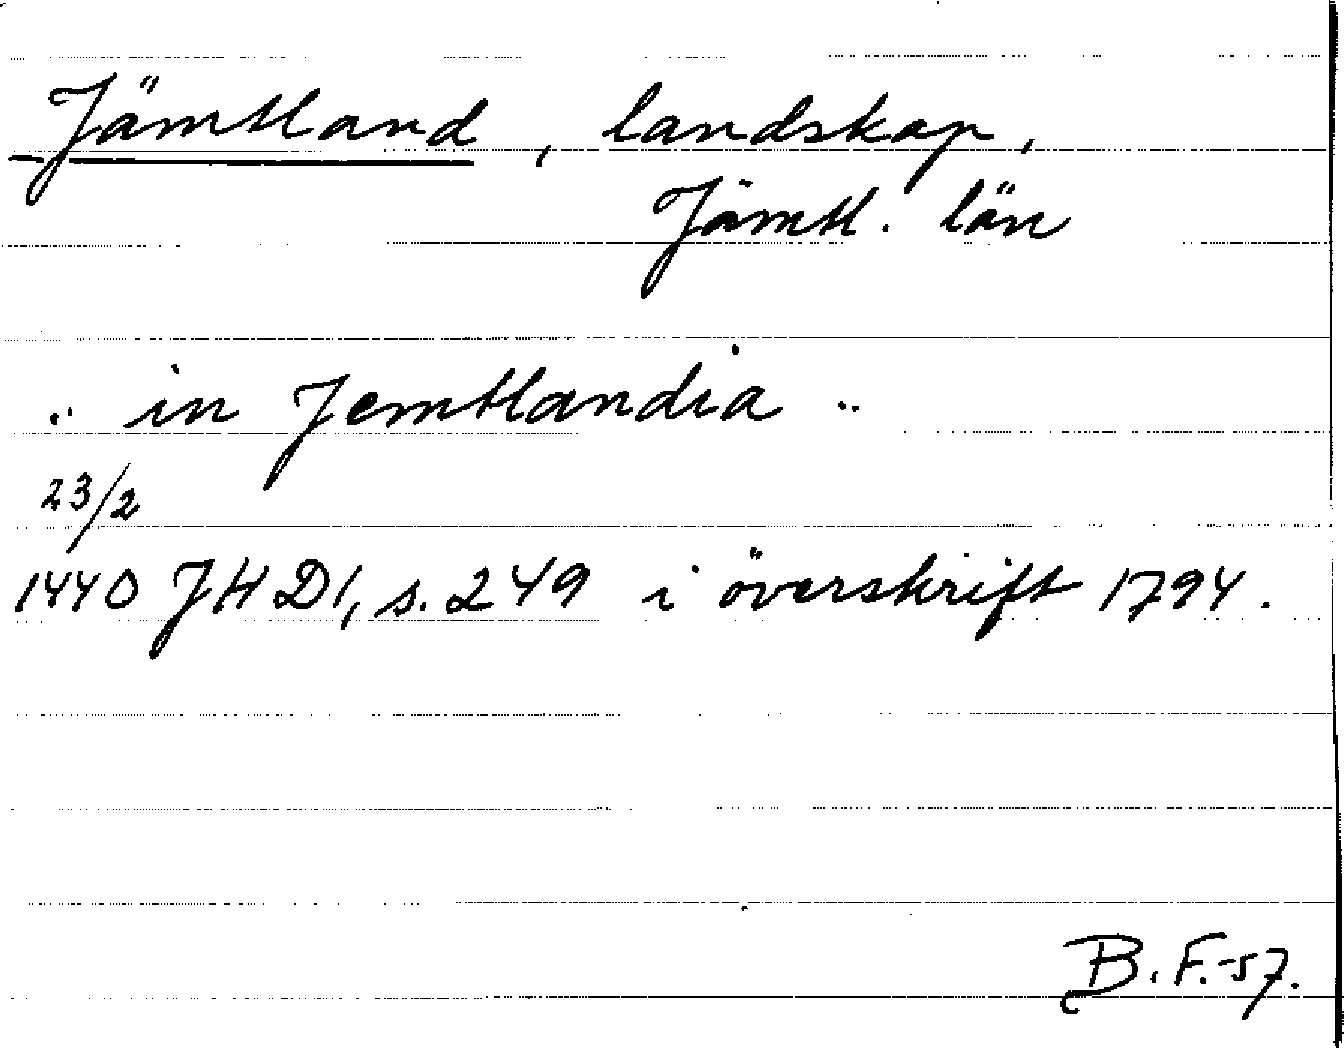 Jämtland, landskap,
Jämtl. län
.. in Jemtlandia ..
23/2
1440 JHD1, s. 249 i överskrift 1794.
B.F.-57.